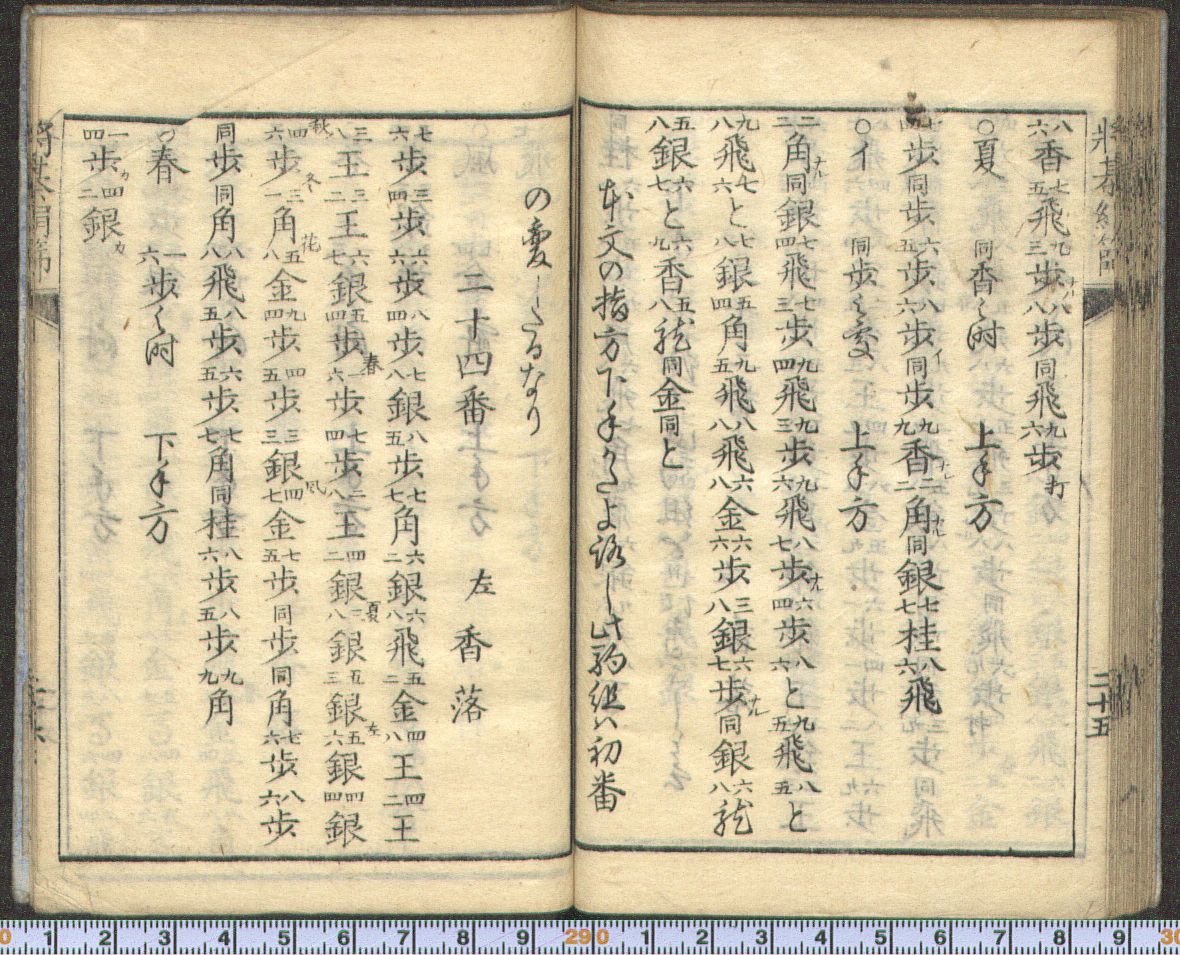 将棊絹篩
二十五
八六香七五飛九三歩ナル八八歩同飛九六歩打
○夏 同香之時 上手方
七四歩同歩六五歩八六歩イ同歩九九香ナル二二角ナル同銀七七桂八六飛
○イ 同歩之変 上手方
二二角ナル同銀七四飛七三歩九四飛九三歩九六飛八七歩六四歩八六と九五飛八五と
九八飛七六と七八銀五四角九五飛八八飛六八金六六歩三八銀六七歩ナル同銀六八龍
五八銀六七と六九香五八龍同金同と
本文の指方下手かたよ路し此駒組ハ初番
の変したるなり
二十四番 左香落
七六歩三四歩六六歩八四歩七八銀八五歩七七角六二銀六八飛五二金四八王四二王
三八王三二王六七銀五四歩春一六歩七四歩二八王四二銀夏三八銀五三銀左五六銀四四銀
秋四六歩冬三一角花五八金九四歩四五歩三三銀風四七金七五歩同歩同角七六歩八六歩
同歩同角八八飛八五歩六五歩七七角同桂八六歩八五歩九九角
○春 一六歩之時 下手方
一四歩カ四二銀カ
将棊絹篩